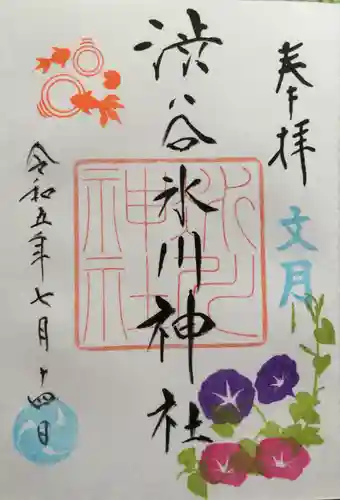 奉拝
文月
渋谷氷川神社
令和五年七月十四日